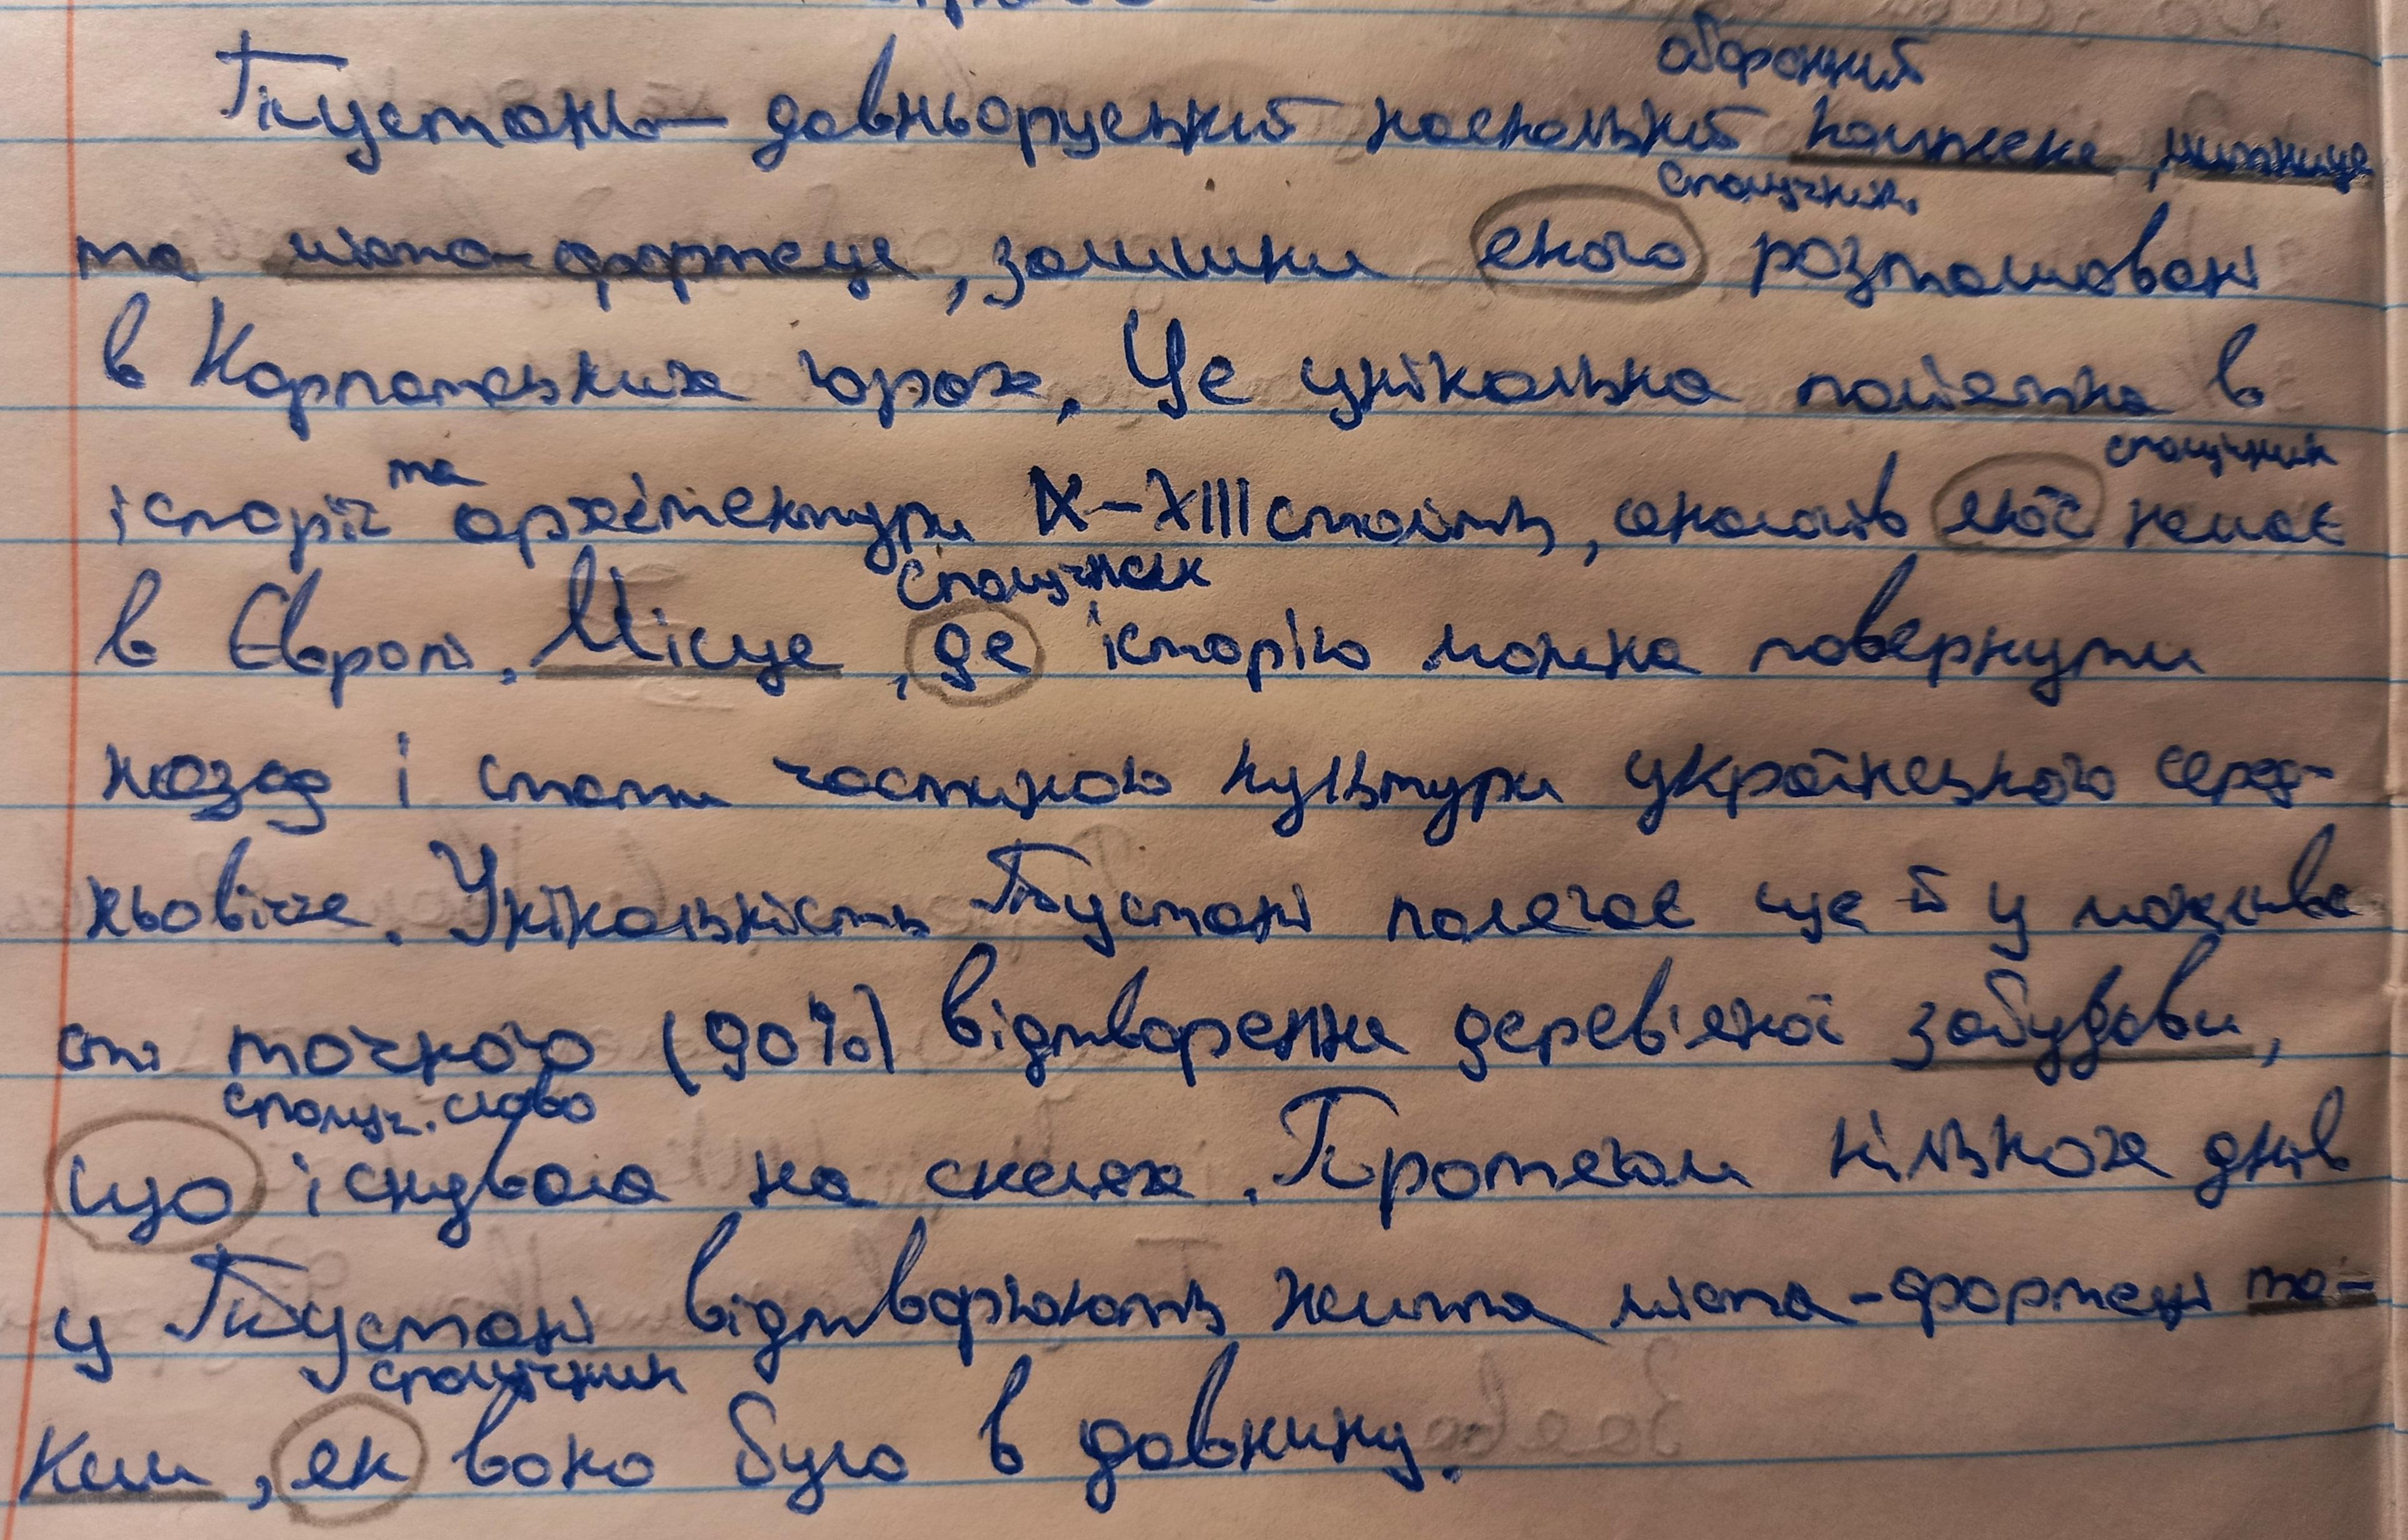 оборонний
Тустань — давньоруський наскельний комплекс, митниця
сполучник
та місто-фортеця, залишки якого розташовані
в Карпатських горах. Це унікальна пам'ятка в
сполучник
історії та архітектури ІХ-ХІІІ століть, аналогів якої немає
сполучник
в Європі. Місце, де історію можна повернути
назад і стати частиною культури українського серед-
ньовіччя. Унікальність Тустані полягає ще й у можливо
сті точного (90%) відтворення дерев'яної забудови,
сполуч. слово
що існувала на скелях. Протягом кількох днів
у Тустані відтворюють життя міста-фортеці та-
сполучник
ким, як воно було в давнину.